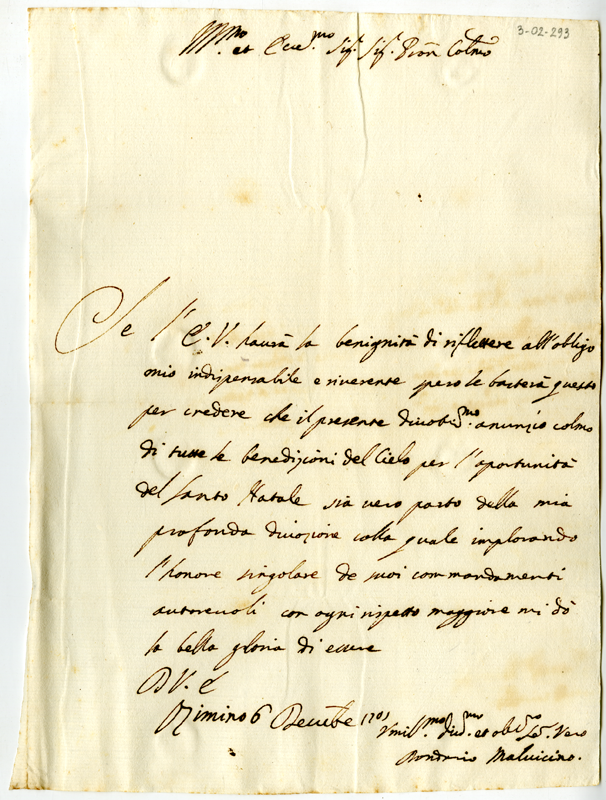 3-02-293
Ill.mo et Ecc.mo Sig.r Sig.r Pron Colmo
Se l'E.V. haurà la benignità di riflettere all'obligo
mio indispensabile e riverente spero le basterà questo
per credere che il presente anunzio colmo
di tutte le benedizioni del Cielo per l'oportunità
del Santo Natale sia vero parto della mia
profonda divozione colla quale implorando
l'honore singolare de suoi commandamenti
autorevoli con ogni rispetto maggiore mi dò
la bella gloria di essere
D V. E
Rimino 6 Decembe 1701
Umill.mo div.mo et obl.mo Se.r Vero
Malvicino.